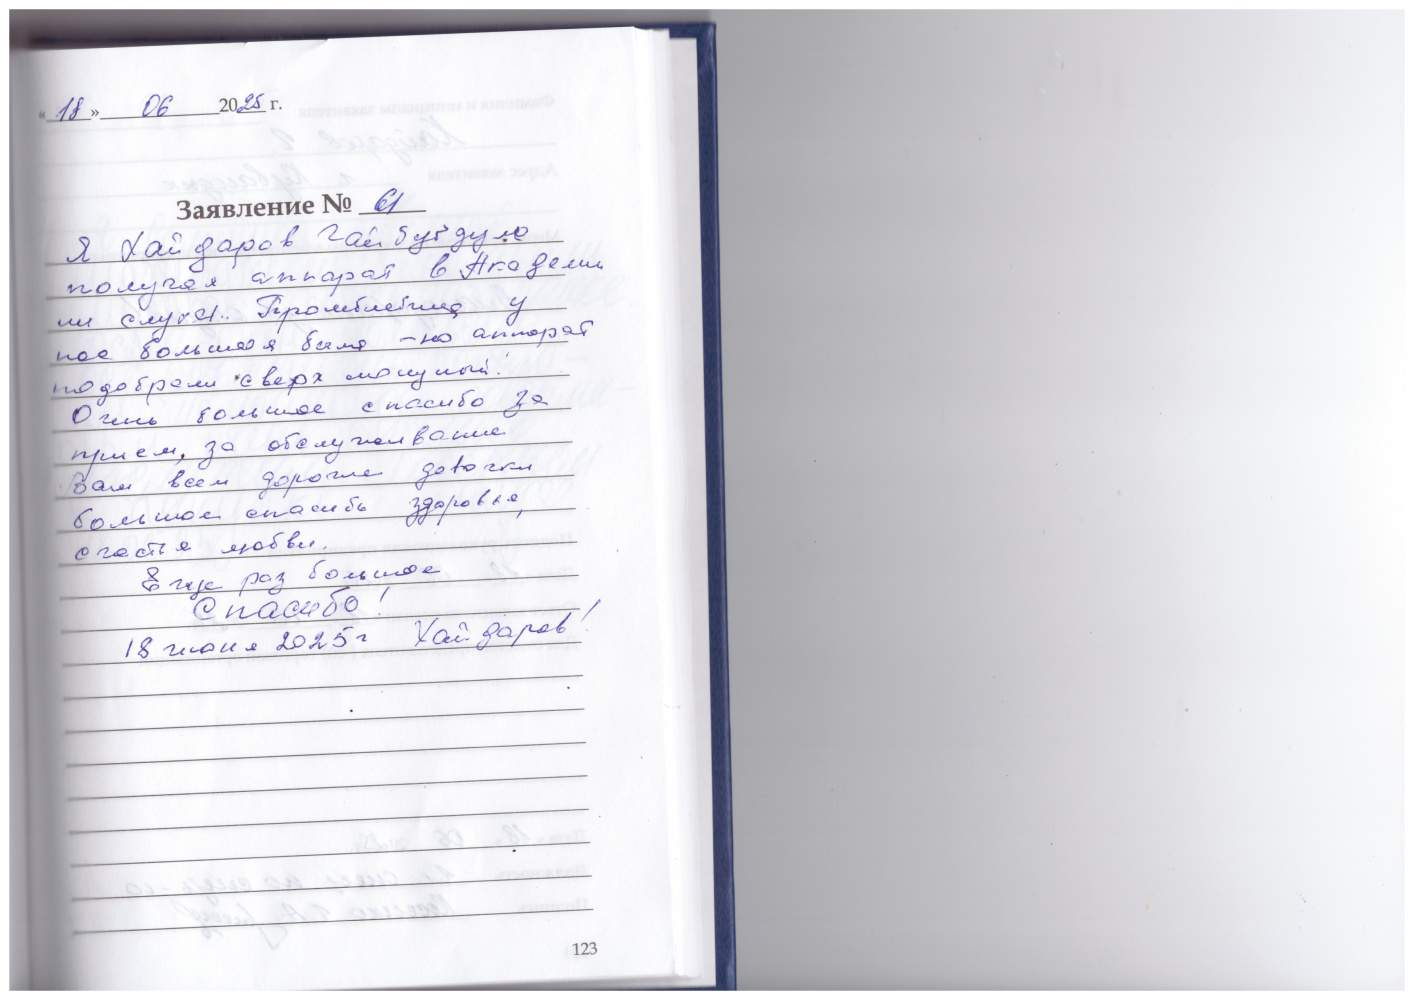 «18» 06 2025 г.
Заявление № 61
Я Хайдаров
получая аппарат в Академии
слуха. у
нас большая была – но аппарат
подобрали сверх мощный!
Очень большое спасибо за
прием, за обслуживание
Вам всем дорогие девочки
большое спасибо здоровья,
счастья любви.
Еще раз большое
Спасибо!
18 июня 2025 г Хайдаров!
123